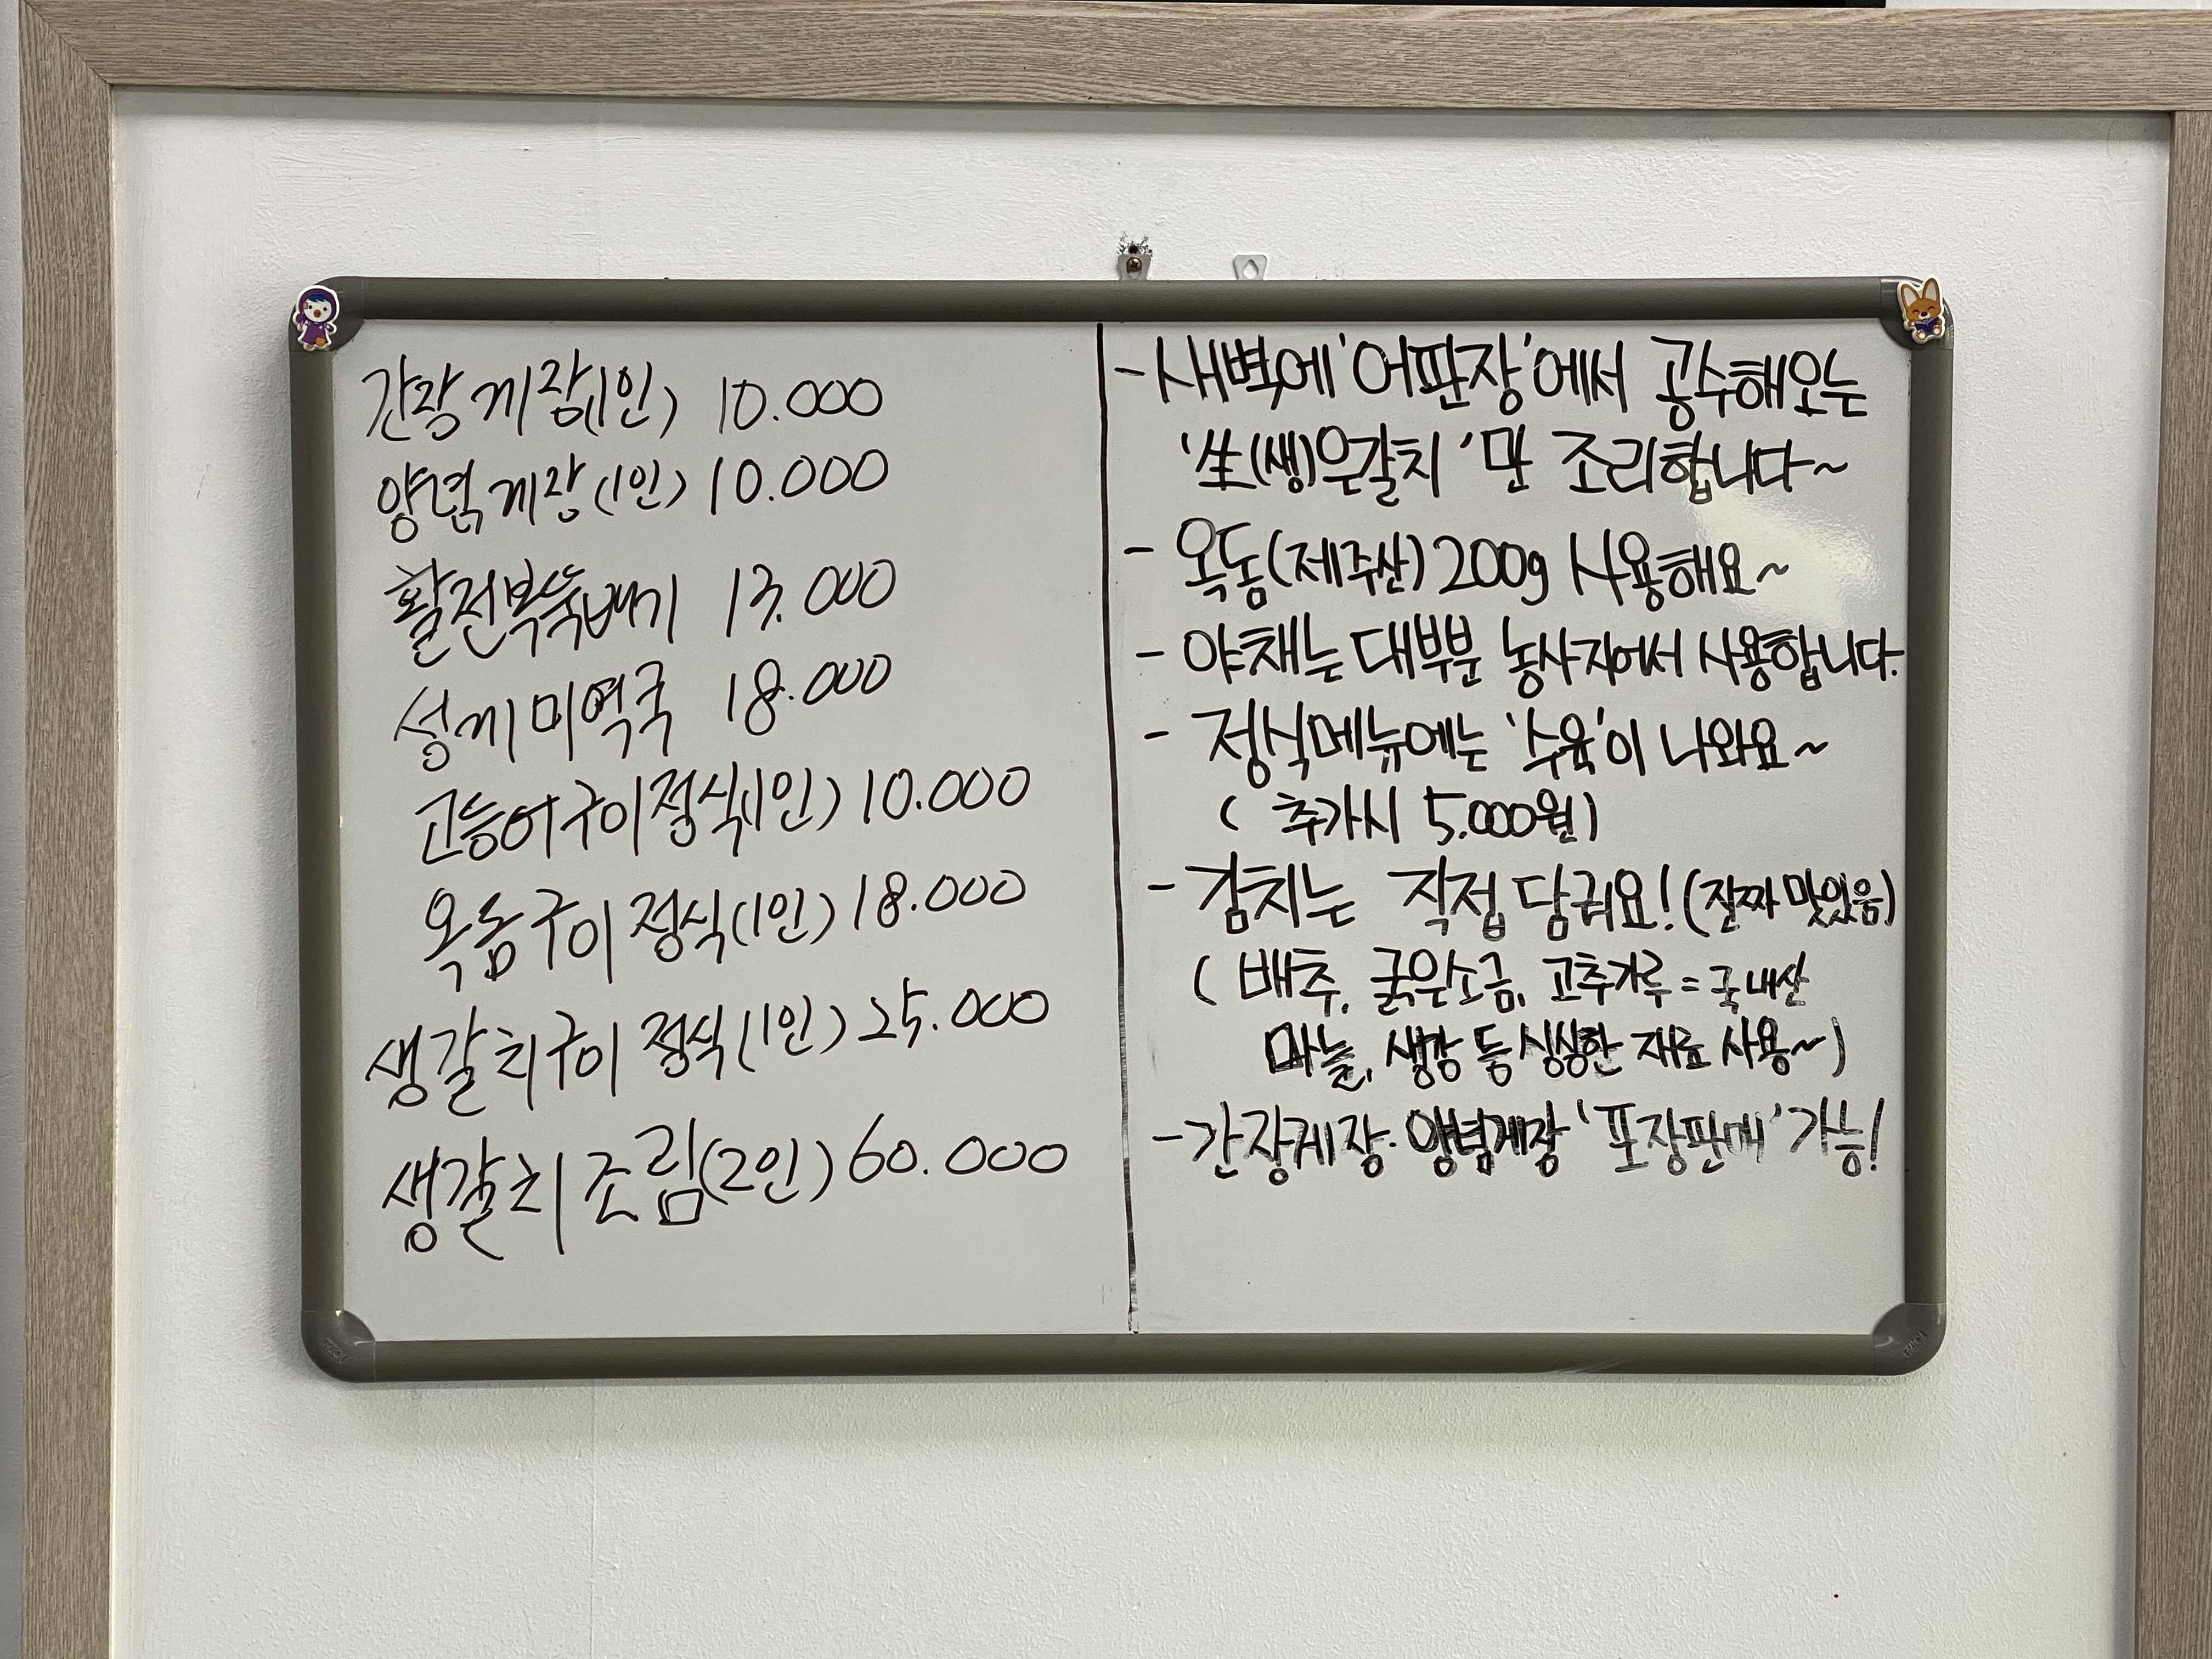 간장게장(1인) 10.000
양념게장(1인) 10.000
활전복뚝배기 13.000
성게미역국 18.000
고등어구이정식(1인) 10.000
옥돔구이정식(1인) 18.000
생갈치구이 정식(1인) 25.000
생갈치조림(2인) 60.000
- 새벽에 '어판장'에서 공수해오는
'生(생)은갈치'만 조리합니다~
- 옥돔(제주산) 200g 사용해요~
- 야채는 대부분 농사지어서 사용합니다.
- 정식메뉴에는 '수육'이 나와요~
( 추가시 5.000원)
- 김치는 직접 담궈요! (진짜 맛있음)
( 배추, 굵은소금, 고추가루 = 국내산
마늘, 생강 등 싱싱한 재료 사용~)
- 간장게장·양념게장 '포장판매' 가능!